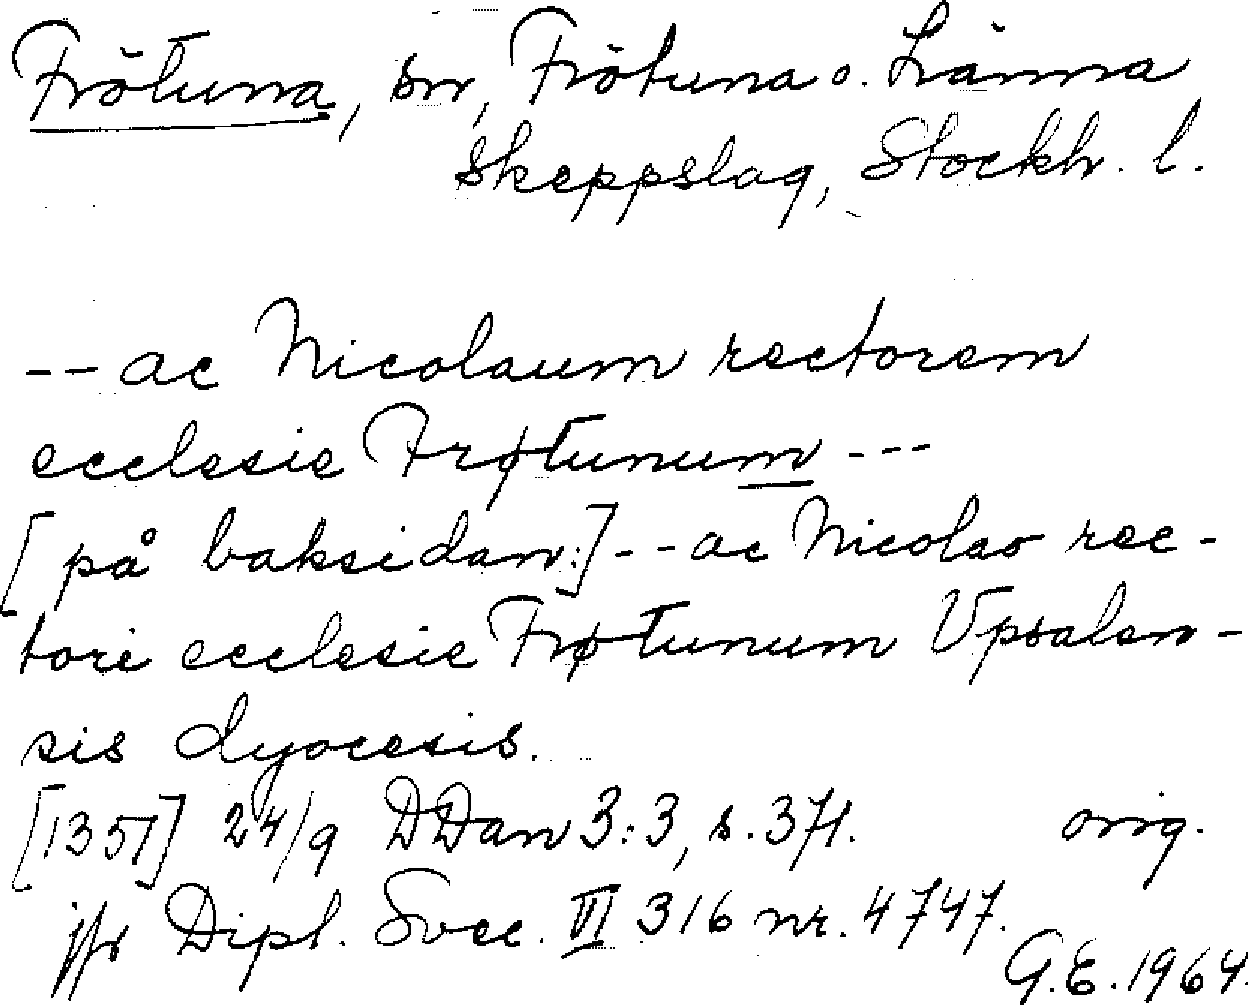 Frötuna, sn, Frötuna o. Länna
skeppslag, Stockh. l.
-- ac Nicolaum rectorem
ecclesie Frøtunum ---
[på baksidan:] -- ac Nicolao rec-
tori ecclesie Frøtunum Upsalen-
sis dyocesis.
[1357] 24/9 DDan 3:3, s. 371. orig.
jfr Dipl. Svec. VI 316 nr. 4747.
G.E. 1964.